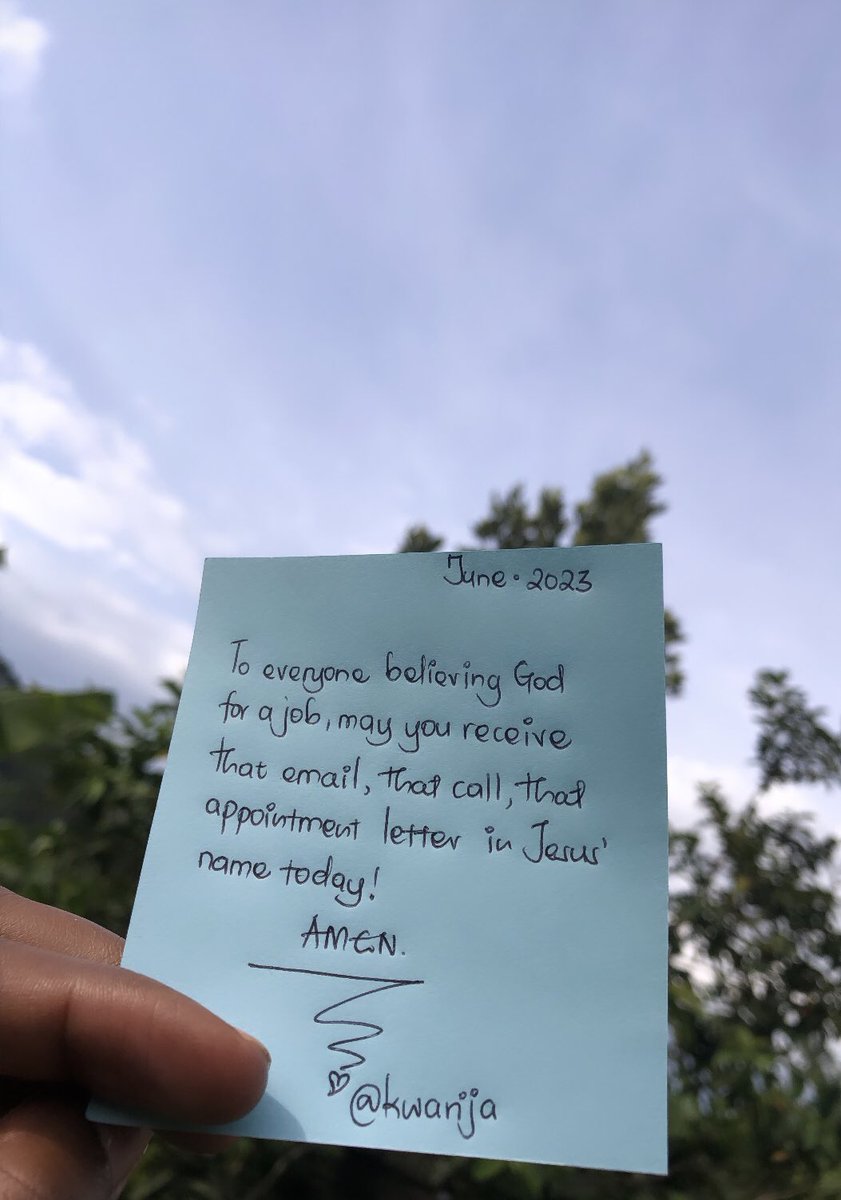 June • 2023
To everyone believing God
for a job, may you receive
that email, that call, that
appointment letter in Jesus'
name today!
AMEN.
@kwanjja